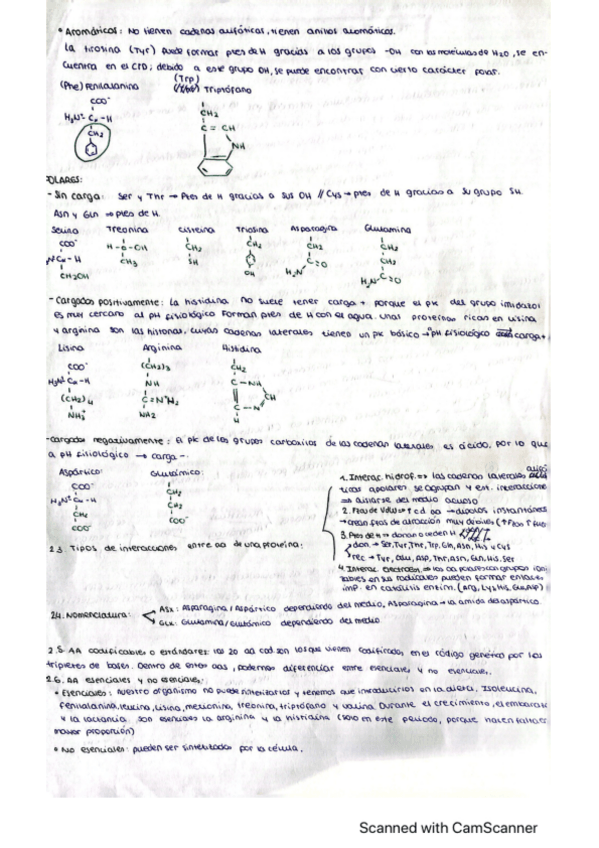 • Aromáticos: No tienen cadenas alifáticas, tienen anillos aromáticos.
La tirosina (Tyr) puede formar ptes de H gracias a los grupos -OH con las moléculas de H₂O, se en-
cuentra en el CPD; debido a este grupo OH, se puede encontrar con cierto carácter polar.
(Phe) Fenilalanina (Trp) Triptófano
COO⁻
H₃N⁺-Cα-H
CH₂
CH₂
C = CH
NH
POLARES:
- Sin carga: Ser y Thr → Ptes de H gracias a sus OH // Cys → ptes de H gracias a su grupo SH.
Asn y Gln → ptes de H.
Serina Treonina Cisteína Tirosina Asparagina Glutamina
COO⁻ H-C-OH CH₂ CH₂ CH₂ CH₂
Cα-H CH₃ SH OH H₂N C=O CH₂
CH₂OH H₂N C=O
- Cargados positivamente: La histidina no suele tener carga + porque el pK del grupo imidazol
es muy cercano al pH fisiológico forman ptes de H con el agua. Unas proteínas ricas en lisina
y arginina son las histonas, cuyas cadenas laterales tienen un pK básico → pH fisiológico carga +
Lisina Arginina Histidina
COO⁻ (CH₂)₃ CH₂
H₃N⁺ Cα-H NH C-NH
(CH₂)₄ C=N⁺H₂ CH
NH₃⁺ NH2 C-N
- Cargados negativamente: El pK de los grupos carboxilos de las cadenas laterales es ácido, por lo que
a pH fisiológico → carga -.
Aspártico: Glutámico:
COO⁻ CH₂
H₃N⁺ Cα-H CH₂
CH₂ COO⁻
COO⁻
1. Interac. hidrof. → las cadenas laterales
apolares se agrupan y est. interacciones
→ aislarse del medio acuoso
2. Fzas de VdW → dipolos instantáneos
→ crean fzas de atracción muy débiles
3. Ptes de H → donan o ceden H
don → Ser, Tyr, Thr, Trp, Gln, Asn, His y Cys
rec → Tyr, Glu, Asp, Thr, Asn, Gln, His, Ser
4. Interac. electrost. → los aa poseen grupos ioni-
zables en sus radicales pueden formar enlaces
imp. en catálisis enzim. (Arg, Lys, His, Glu, Asp)
2.3. Tipos de interacciones entre aa de una proteína:
2.4. Nomenclatura:
Asx: Asparagina/Aspártico dependiendo del medio, Asparagina → la amida del aspártico.
Glx: Glutamina/Glutámico dependiendo del medio
2.5. AA codificables o estándares: los 20 aa cod. son los que vienen codificados en el código genético por los
tripletes de bases. Dentro de estos aas, podemos diferenciar entre esenciales y no esenciales.
2.6. AA esenciales y no esenciales:
• Esenciales: nuestro organismo no puede sintetizarlos y tenemos que introducirlos en la dieta. Isoleucina,
fenilalanina, leucina, lisina, metionina, treonina, triptófano y valina. Durante el crecimiento, el embarazo
y la lactancia son esenciales la arginina y la histidina (solo en este período, porque hacen falta en
mayor proporción)
• No esenciales: pueden ser sintetizados por la célula.
Scanned with CamScanner